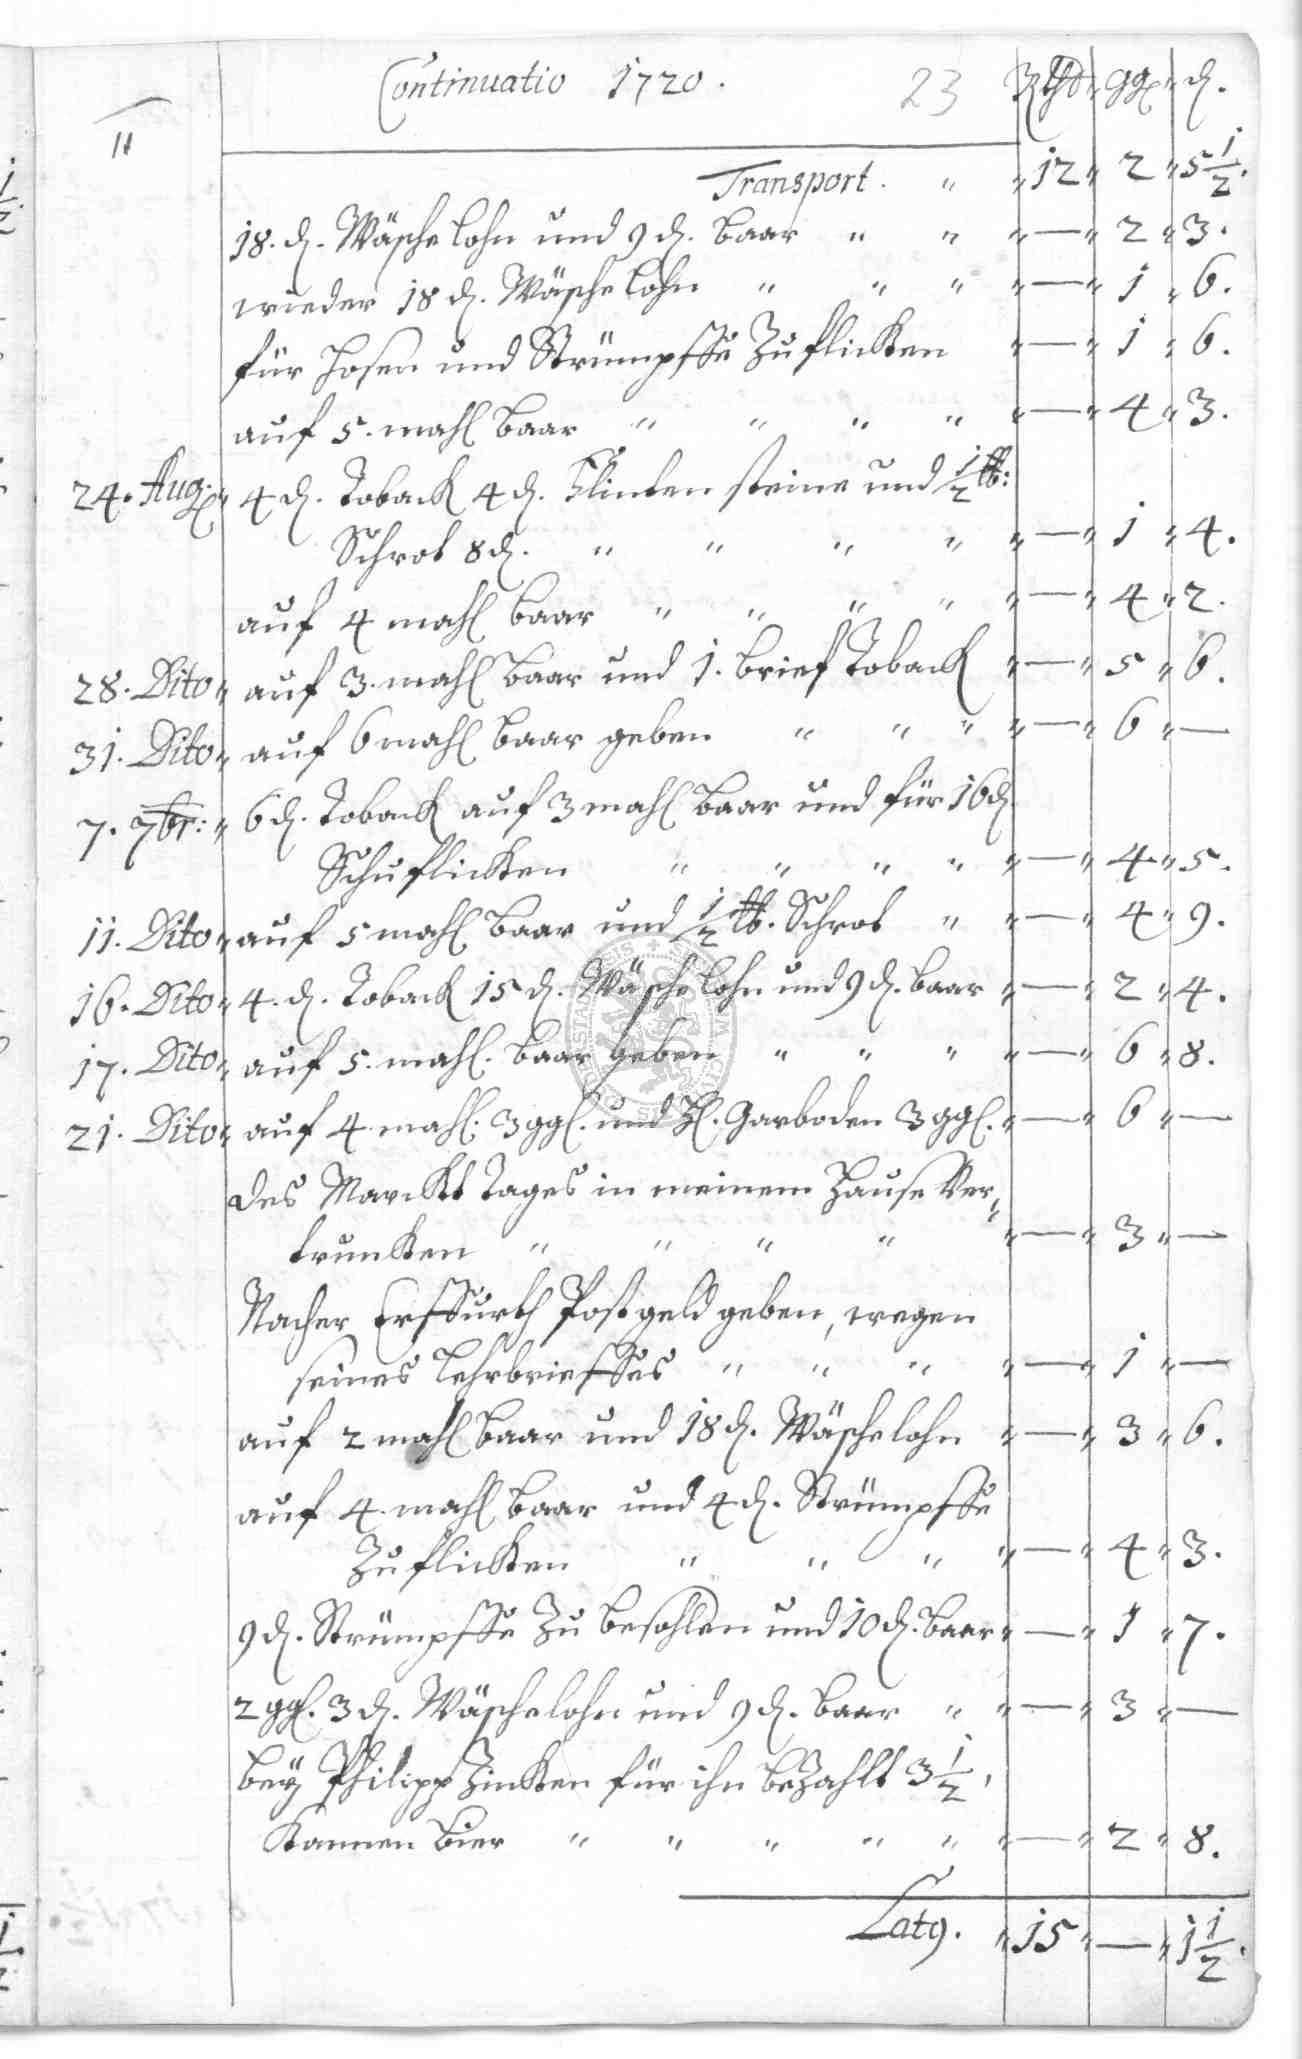 Continuatio 1720. 23 Rthl. ggl. d.
11
Transport. " " 12 " 2 " 5 1/2.
18. d. Wäschelohn und 9 d. baar " " " — " 2 " 3.
wieder 18 d. Wäschelohn " " " " — " 1 " 6.
für Hosen und Strümpffe Zuflicken " — " 1 " 6.
auf 5. mahl baar " " " " " — " 4 " 3.
24. Aug: " 4 d. Toback 4 d. Flintensteine und 1/2 lb:
Schrot 8 d. " " " " " — " 1 " 4.
auf 4 mahl baar " " " " " — " 4 " 2.
28. Dito " auf 3. mahl baar und 1. brief Toback " — " 5 " 6.
31. Dito " auf 6 mahl baar geben " " " " — " 6 " —
7. 7br: " 6 d. Toback auf 3 mahl baar und für 16 d.
Schuflicken " " " " " — " 4 " 5.
11. Dito " auf 5 mahl baar und 1/2 lb. Schrot " " — " 4 " 9.
16. Dito " 4. d. Toback 15 d. Wäschelohn und 9 d. baar " — " 2 " 4.
17. Dito " auf 5. mahl. baar geben " " " " — " 6 " 8.
21. Dito " auf 4 mahl. 3 ggl. und H. Garboden 3 ggl. " — " 6 " —
des Marckt Tages in meinem Hause Ver,,
truncken " " " " " — " 3 " —
Nacher Erffurth Postgeld geben, wegen
seines Lehrbrieffes " " " " — " 1 " —
auf 2 mahl baar und 18 d. Wäschelohn " — " 3 " 6.
auf 4 mahl baar und 4 d. Strümpffe
Zuflicken " " " " — " 4 " 3.
9 d. Strümpffe Zu besohlen und 10 d. baar " — " 1 " 7.
2 ggl. 3 d. Wäschelohn und 9 d. baar " " — " 3 " —
bey Philipp Zincken für ihn bezahlt 3 1/2.
Kannen Bier " " " " " " — " 2 " 8.
Lat9. " 15 " — " 1 1/2.